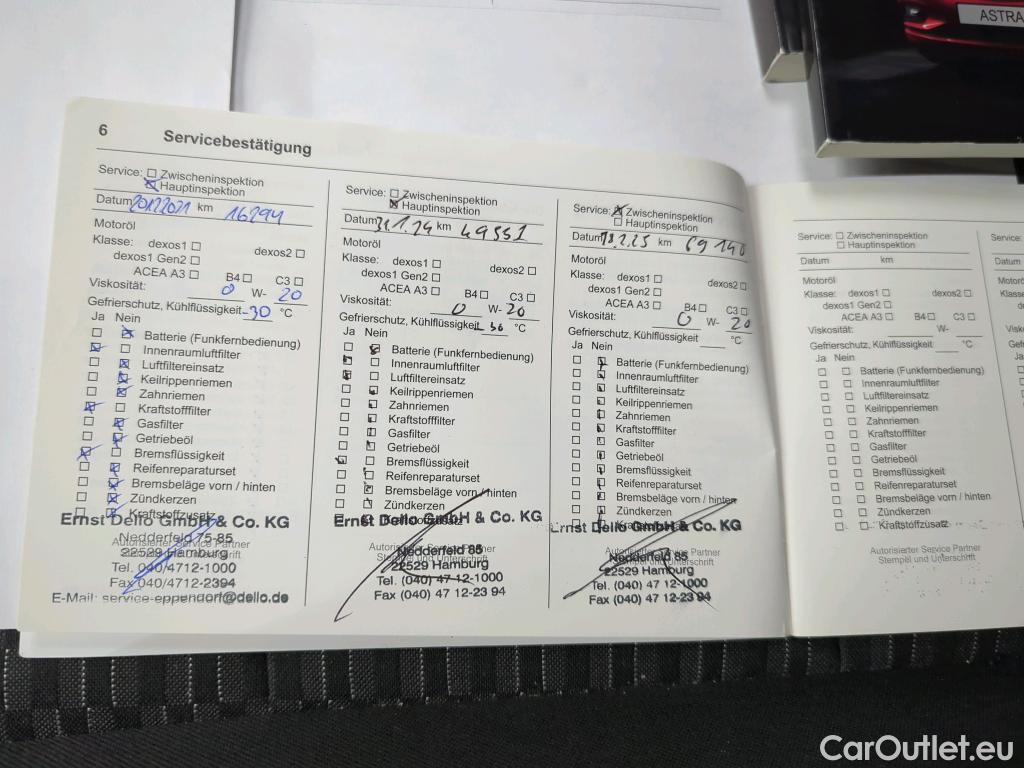 ASTRA
6 Servicebestätigung
Service: Zwischeninspektion
Hauptinspektion
Datum 20122021 km 16294
Motoröl
Klasse: dexos1 dexos2
dexos1 Gen2
ACEA A3 B4 C3
Viskosität: 0 W- 20
Gefrierschutz, Kühlflüssigkeit -30 °C
Ja Nein
Batterie (Funkfernbedienung)
Innenraumluftfilter
Luftfiltereinsatz
Keilrippenriemen
Zahnriemen
Kraftstofffilter
Gasfilter
Getriebeöl
Bremsflüssigkeit
Reifenreparaturset
Bremsbeläge vorn / hinten
Zündkerzen
Kraftstoffzusatz
Ernst Dello GmbH & Co. KG
Nedderfeld 75-85
Autorisierter Service Partner
22529 Hamburg
Tel. 040/4712-1000
Fax 040/4712-2394
E-Mail: service-eppendorf@dello.de
Service: Zwischeninspektion
Hauptinspektion
Datum 31.1.24 km 49551
Motoröl
Klasse: dexos1 dexos2
dexos1 Gen2
ACEA A3 B4 C3
Viskosität: 0 W- 20
Gefrierschutz, Kühlflüssigkeit °C
Ja Nein
Batterie (Funkfernbedienung)
Innenraumluftfilter
Luftfiltereinsatz
Keilrippenriemen
Zahnriemen
Kraftstofffilter
Gasfilter
Getriebeöl
Bremsflüssigkeit
Reifenreparaturset
Bremsbeläge vorn / hinten
Zündkerzen
Ernst Dello GmbH & Co. KG
Autorisierter Service Partner
Nedderfeld 85
Stempel und Unterschrift
22529 Hamburg
Tel. (040) 47 12-1000
Fax (040) 47 12-23 94
Service: Zwischeninspektion
Hauptinspektion
Datum 18.2.25 km 69140
Motoröl
Klasse: dexos1 dexos2
dexos1 Gen2
ACEA A3 B4 C3
Viskosität: 0 W- 20
Gefrierschutz, Kühlflüssigkeit °C
Ja Nein
Batterie (Funkfernbedienung)
Innenraumluftfilter
Luftfiltereinsatz
Keilrippenriemen
Zahnriemen
Kraftstofffilter
Gasfilter
Getriebeöl
Bremsflüssigkeit
Reifenreparaturset
Bremsbeläge vorn / hinten
Zündkerzen
Ernst Dello GmbH & Co. KG
Autorisierter Service Partner
Nedderfeld 85
Stempel und Unterschrift
22529 Hamburg
Tel. (040) 47 12-1000
Fax (040) 47 12-23 94
Service: Zwischeninspektion
Hauptinspektion
Datum km
Motoröl
Klasse: dexos1 dexos2
dexos1 Gen2
ACEA A3 B4 C3
Viskosität: W-
Gefrierschutz, Kühlflüssigkeit °C
Ja Nein
Batterie (Funkfernbedienung)
Innenraumluftfilter
Luftfiltereinsatz
Keilrippenriemen
Zahnriemen
Kraftstofffilter
Gasfilter
Getriebeöl
Bremsflüssigkeit
Reifenreparaturset
Bremsbeläge vorn / hinten
Zündkerzen
Kraftstoffzusatz
Autorisierter Service Partner
Stempel und Unterschrift
Service:
Datum
Motoröl
CarOutlet.eu